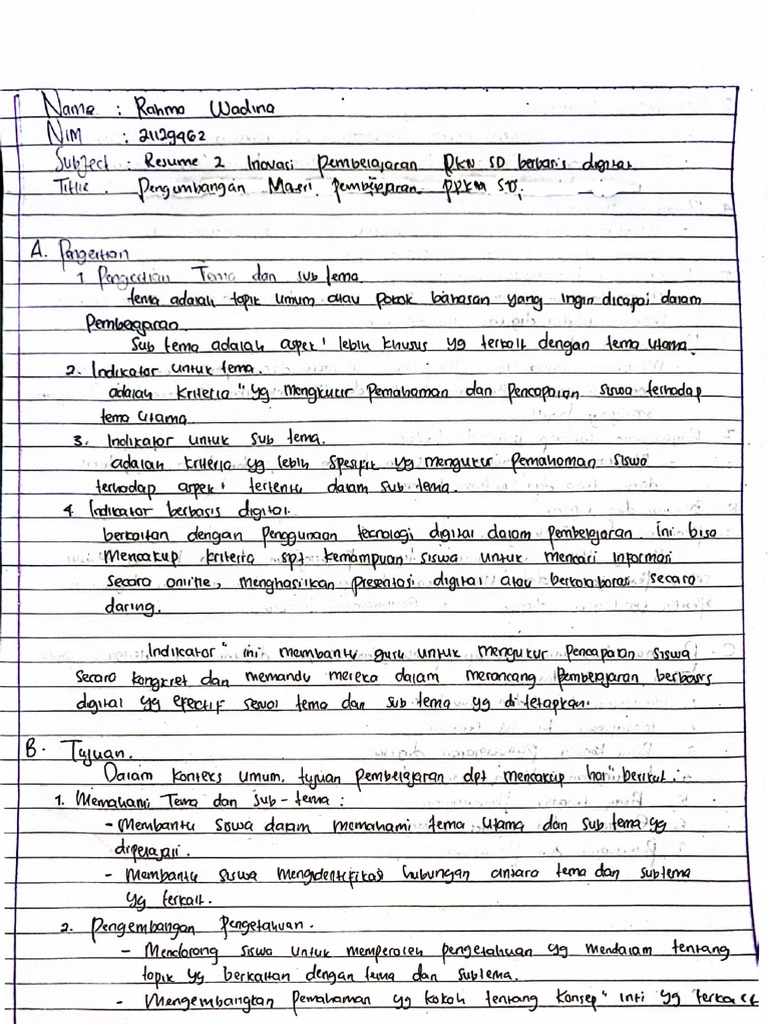 Name : Rahma Wadina
NIM : 21129462
Subject : Resume 2 Inovasi Pembelajaran PKN SD berbasis digital
Title : Pengembangan Materi pembelajaran PPKn SD.
A. Pengertian
1. Pengertian Tema dan sub tema.
tema adalah topik umum atau pokok bahasan yang ingin dicapai dalam
Pembelajaran.
Sub tema adalah aspek² lebih khusus yg terkait dengan tema utama.
2. Indikator untuk tema.
adalah kriteria" yg mengukur pemahaman dan pencapaian siswa terhadap
tema utama
3. Indikator untuk sub tema.
adalah kriteria yg lebih spesifik yg mengukur pemahaman siswa
terhadap aspek² tertentu dalam sub tema.
4. Indikator berbasis digital.
berkaitan dengan penggunaan teknologi digital dalam pembelajaran. ini bisa
mencakup kriteria spt kemampuan siswa untuk mencari informasi
secara online, menghasilkan presentasi digital atau berkolaborasi secara
daring.
Indikator" ini membantu guru untuk mengukur pencapaian siswa
secara kongkret dan memandu mereka dalam merancang pembelajaran berbasis
digital yg efectif sesuai tema dan sub tema yg di tetapkan.
B. Tujuan.
Dalam konteks umum, tujuan pembelajaran dpt mencakup hal" berikut :
1. Memahami Tema dan sub-tema :
- Membantu siswa dalam memahami tema utama dan sub tema yg
dipelajari.
- Membantu siswa mengidentifikasi hubungan antara tema dan subtema
yg terkait.
2. Pengembangan Pengetahuan.
- Mendorong siswa untuk memperoleh pengetahuan yg mendalam tentang
topik yg berkaitan dengan tema dan subtema.
- Mengembangkan pemahaman yg kokoh tentang konsep" inti yg terkait